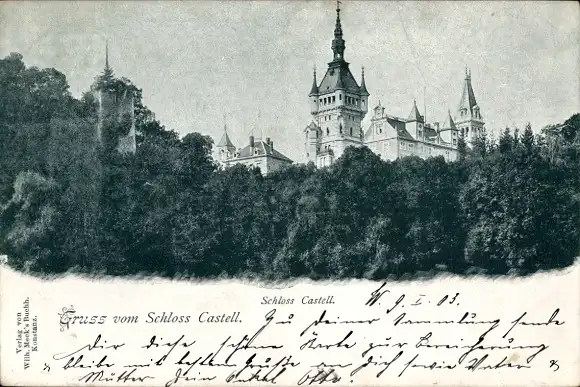 Schloss Castell.
W. 9. I. 03.
Gruss vom Schloss Castell.
Zu Deiner Sammlung sende
Dir diese schöne Karte zur Bereicherung
bleibe mit besten Grüße an Dich sowie Vater &
Mutter Dein Onkel Otto.
Verlag von
Wilh. Meck's Buchh.
Konstanz.